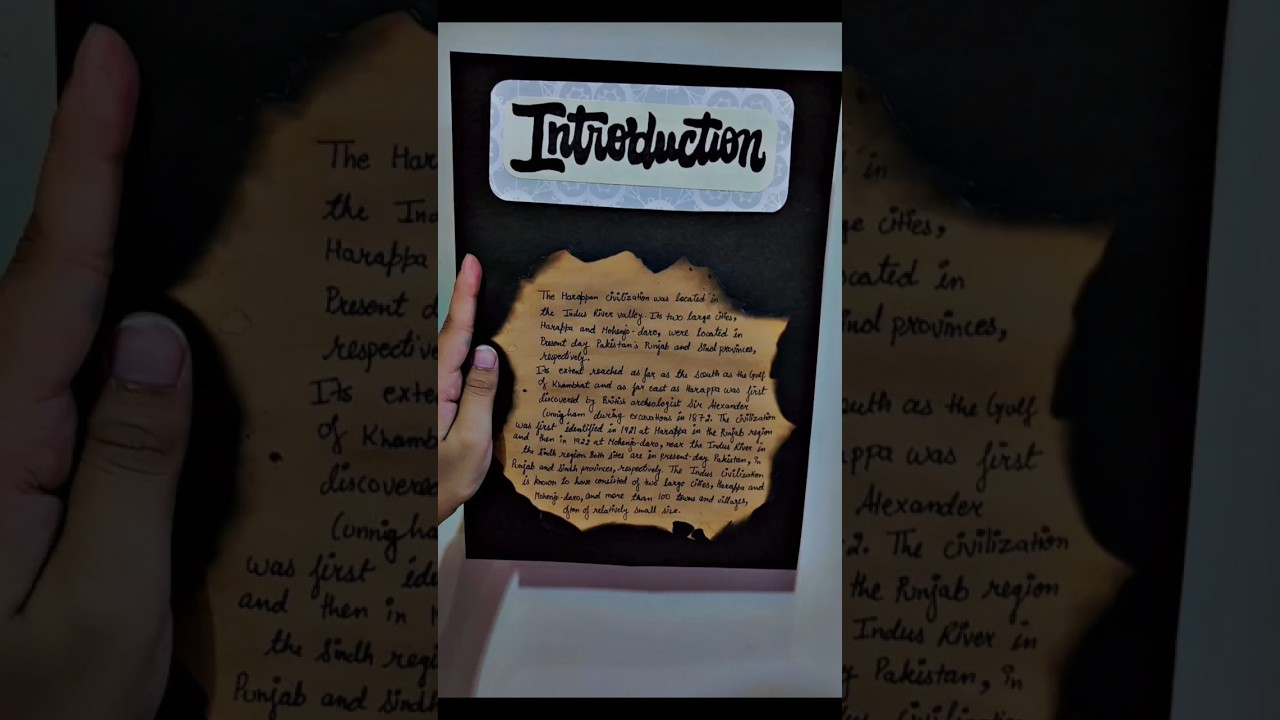 Introduction
The Harappan civilization was located in
the Indus River valley. Its two large cities,
Harappa and Mohenjo-daro, were located in
Present day Pakistan's Punjab and Sind provinces,
respectively.
Its extent reached as far as the south as the Gulf
of Khambhat and as far east as Harappa was first
discovered by British archeologist Sir Alexander
Cunnigham during excavations in 1872. The civilization
was first identified in 1921 at Harappa in the Punjab region
and then in 1922 at Mohenjo-daro, near the Indus River in
the Sindh region Both sites are in present-day Pakistan, in
Punjab and Sindh provinces, respectively. The Indus Civilization
is known to have consisted of two large cities, Harappa and
Mohenjo-daro, and more than 100 towns and villages,
often of relatively small size.